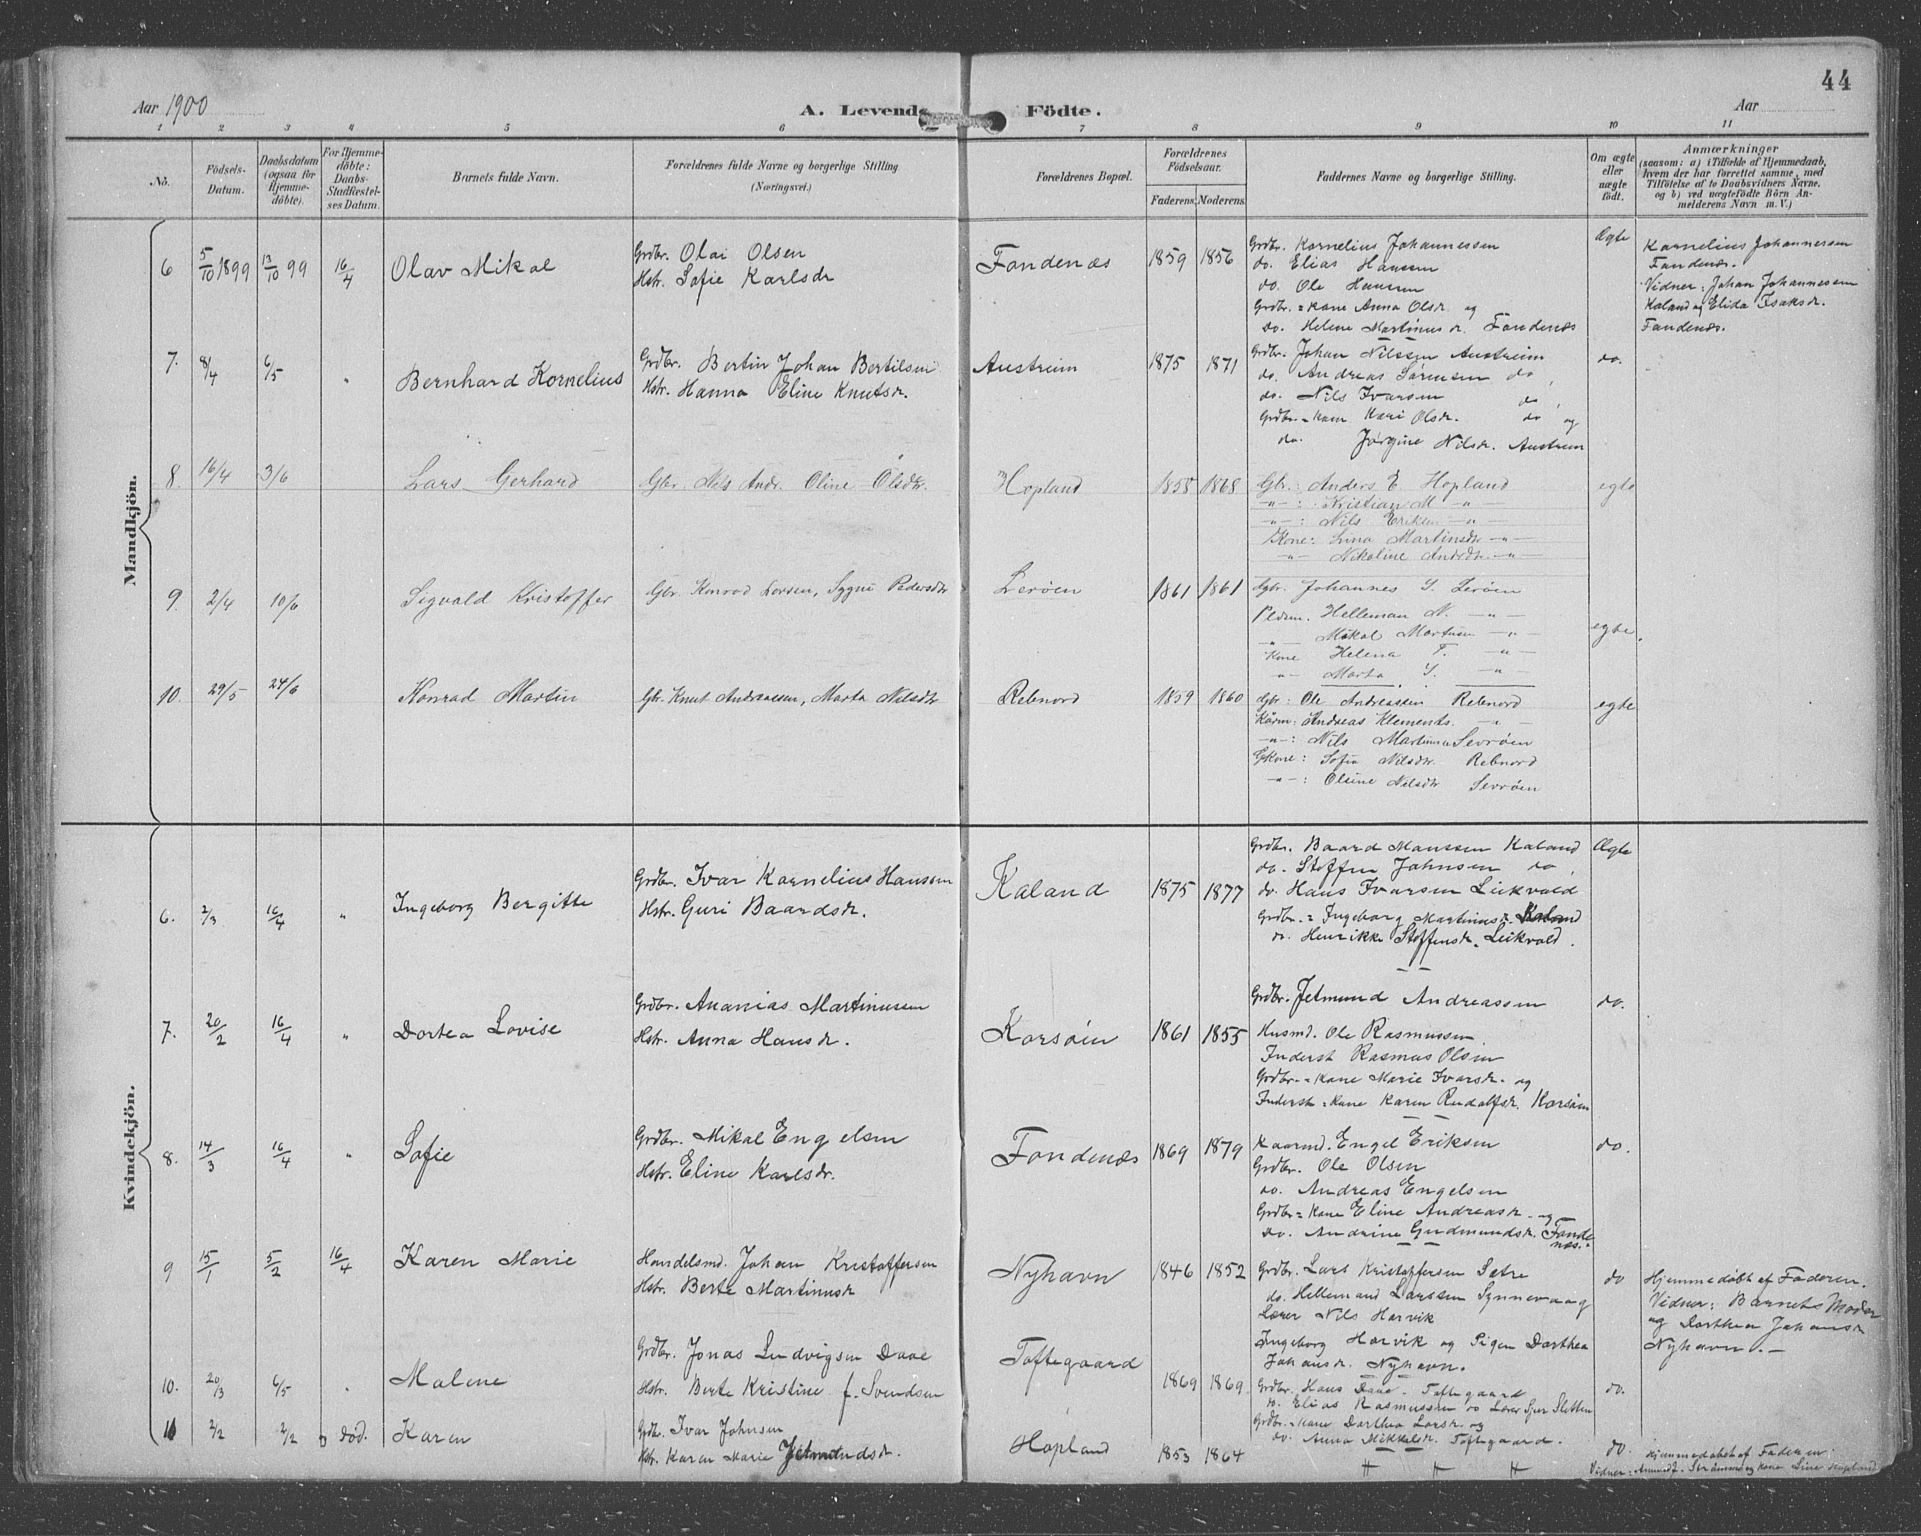 44
Aar 1900
A. Levende Födte.
Aar
1 2 3 4 5 6 7 8 9 10 11
No.
Födsels-Datum.
Daabsdatum (ogsaa for Hjemme-döbte).
For Hjemme-döbte: Daabs-Stadfæstel-ses Datum.
Barnets fulde Navn.
Forældrenes fulde Navne og borgerlige Stilling (Næringsvei.)
Forældrenes Bopæl.
Forældrenes Födselsaar.
Faderens. Moderens.
Faddernes Navne og borgerlige Stilling.
Om ægte eller uægte födt.
Anmærkninger
(saasom: a) i Tilfælde af Hjemmedaab, hvem der har forrettet samme, med Tilföielse af to Daabsvidners Navne, og b) ved uægtefödte Börn An-melderens Navn m. V.)
Mandkjön.
6 5/10 1899 13/10 99 16/4 Olav Mikal
Grdbr. Olai Olsen
Hstr. Sofie Karlsdr
Fondenæs 1859 1856
Grdbr. Kornelius Johannessen
do. Elias Hansen
do. Ole Hansen
Grdbr.=kane Anna Olsdr. og
do. Helene Martinusdr. Fondenæs
Ægte
Kornelius Johannessen
Fondenæs.
Vidner: Johan Johannessen
Kaland og Elida Isaksdr.
Fondenæs.
7. 8/4 6/5 " Bernhard Kornelius
Grdbr. Bertin Johan Bertilsen
Hstr. Hanna Eline Knutsdr.
Austreim 1875 1871
Grdbr. Johan Nilssen Austreim
do. Andreas Sørensen do.
do. Nils Ivarsen do.
Grdbr.=kane Kari Olsdr. do og
do. Jørgine Nilsdr. Austreim
do.
8. 16/4 3/6 Lars Gerhard
Gbr. Nils Andr. Oline Olsdtr.
Hopland 1855 1868
Gbr.: Anders E. Hopland
-"-: Kristian M -"-
-"-: Nils Eriksen -"-
Kone: Lina Martinsdtr -"-
-"- Nikoline Andsdtr. -"-
egte
9. 2/4 10/6 Sigvald Kristoffer
Gbr. Konrad Larsen, Sygni Pedersdtr
Lerøen 1861 1861
Gbr. Johannes S. Lerøen
Pldsm. Helleman N. -"-
-"- Mikal Martinsen -"-
Kone Helena T. -"-
-"- Marta S. -"-
egte.
10. 29/5 24/6 Konrad Martin
Gbr. Knut Andreassen, Marta Nilsdtr
Rebnord 1859 1860
Gbr: Ole Andreassen Rebnord
Kårm: Andreas Klements. -"-
-"-: Nils Martinsen Sevrøen
GKone: Sofia Nilsdtr. Rebnord
-"-: Olsine Nilsdtr Sevrøen
egte
Kvindekjön.
6. 2/3 16/4 " Ingeborg Bergitte
Grdbr. Ivar Kornelius Hanssen
Hstr. Guri Baardsdr.
Kaland 1875 1877
Grdbr. Baard Monssen Kaland
do. Stoffer Johnsen do.
do. Hans Ivarsen Leikvold
Grdbr.= Ingeborg Martinusdr. Kaland
do. Henrikke Stoffersdr. Leikvold.
Ægte
7. 20/2 16/4 " Dortea Lovise
Grdbr. Ananias Martinussen
Hstr. Anna Hansdr.
Korsøen 1861 1855
Grdbr. Jetmund Andreassen
Husmd. Ole Rasmussen
Inderst Rasmus Olsen
Grdbr.=kane Marie Ivarsdr. og
Inderst=kane Karen Rudolfsdr. Korsøen
do.
8. 14/3 16/4 " Sofie
Grdbr. Mikal Engelsen
Hstr. Eline Karlsdr.
Fondenæs 1869 1879
Kaarmd. Engel Eriksen
Grdbr. Ole Olsen
do. Andreas Engelsen
Grdbr=kane Eline Andreasdr. og
do. Andrine Gudmundsdr. Fonde
næs.
do.
9 15/1 5/2 16/4 Karen Marie
Handelsmd. Johan Kristoffersen
Hstr. Berte Martinusdr
Nyhavn 1846 1852
Grdbr. Lars Kristoffersen Sætre
do. Hellemand Larssen Synnevaag
Lærer Nils Harvik
Ingeborg Harvik og Pigen Dorthea
Johansdr. Nyhavn.
do
Hjemmedøbt af Faderen.
Vidner: Barnets Moder
og Dorthea Johansdr
Nyhavn.-
10. 20/3 6/5 " Malene
Grdbr. Jonas Ludvigsen Daae
Hstr. Berte Kristine f. Svendsen
Toftegaard 1869 1869
Grdbr. Hans Daae. Toftegaard
do. Elias Rasmussen do Lærer Sjur Sletten
Grdbr.=kane Dorthea Larsdr. og
do. Anna Mikkelsdr. Toftegaard.
do.
11 2/2 2/2 død. Karen
Grdbr. Ivar Johnsen
Hstr. Karen Marie Jetmundsdr.
Hopland 1853 1864
do.
Hjemmedøbt af Faderen:
Vidner: Amund J. Strømme og kone Line Hopland